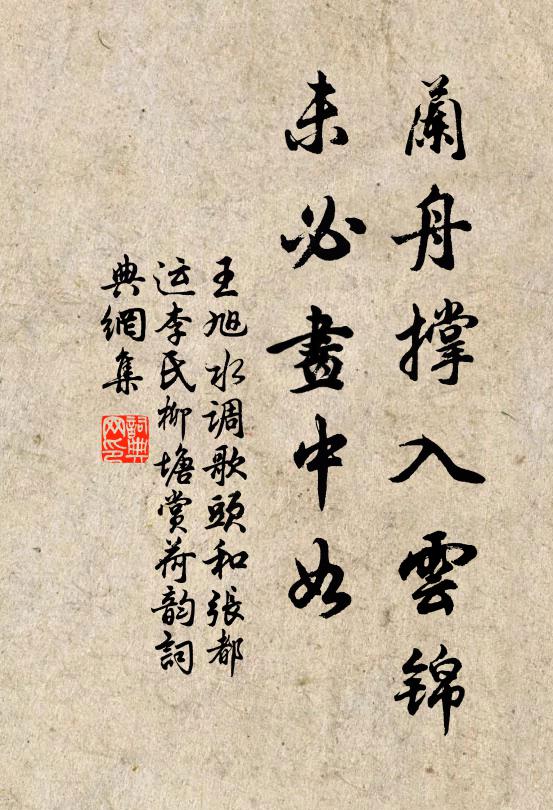 蘭舟撐入雲錦
未必畫中如
王旭水调歌頭和張都
运李氏柳塘賞荷韵詞
典網集
詞典网印